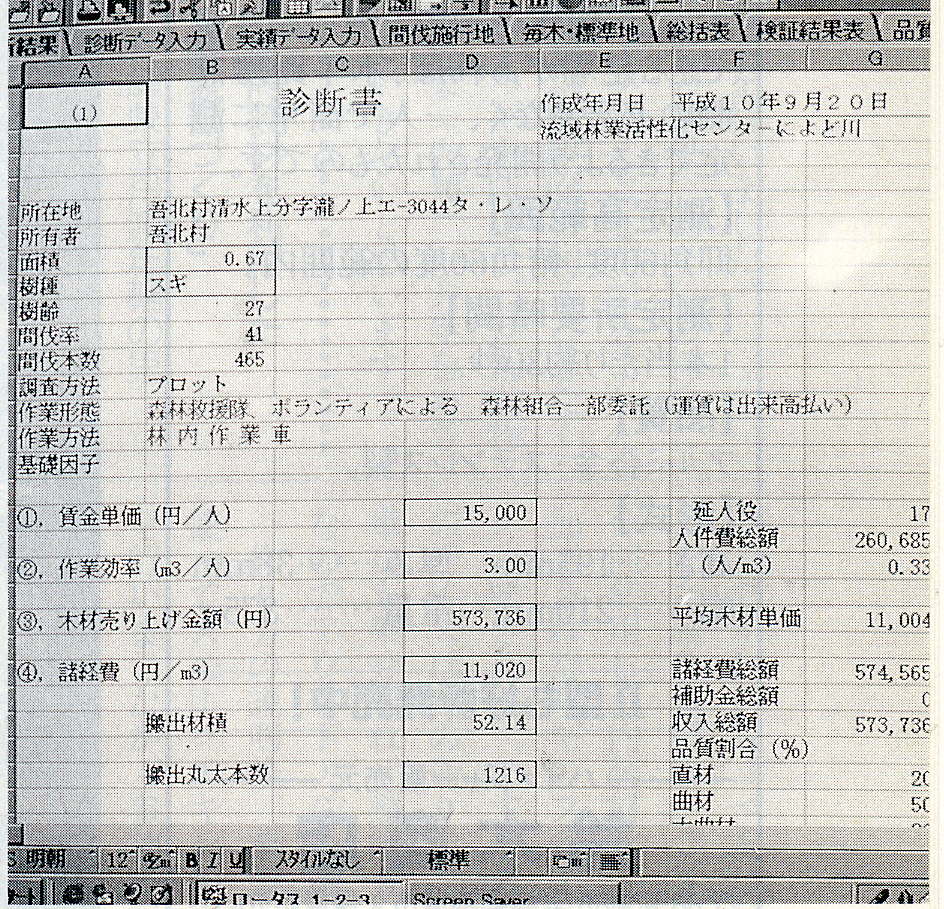 結果 診断データ入力 実績データ入力 間伐施行地 毎木・標準地 総括表 検証結果表 品質
A B C D E F G
(1) 診断書 作成年月日 平成10年9月20日
流域林業活性化センターによど川
所在地 吾北村清水上分字瀧ノ上エ-3044タ・レ・ソ
所有者 吾北村
面積 0.67
樹種 スギ
樹齢 27
間伐率 41
間伐本数 465
調査方法 プロット
作業形態 森林救援隊、ボランティアによる 森林組合一部委託(運賃は出来高払い)
作業方法 林内作業車
基礎因子
①, 賃金単価(円/人) 15,000 延人役 17
人件費総額 260,685
②, 作業効率(m3/人) 3.00 (人/m3) 0.33
③, 木材売り上げ金額(円) 573,736 平均木材単価 11,004
④, 諸経費(円/m3) 11,020 諸経費総額 574,565
補助金総額 0
搬出材積 52.14 収入総額 573,736
品質割合(%)
搬出丸太本数 1216 直材 20
曲材 50
明朝 12 B I U スタイルなし 標準
ロータス 1-2-3 Screen Saver